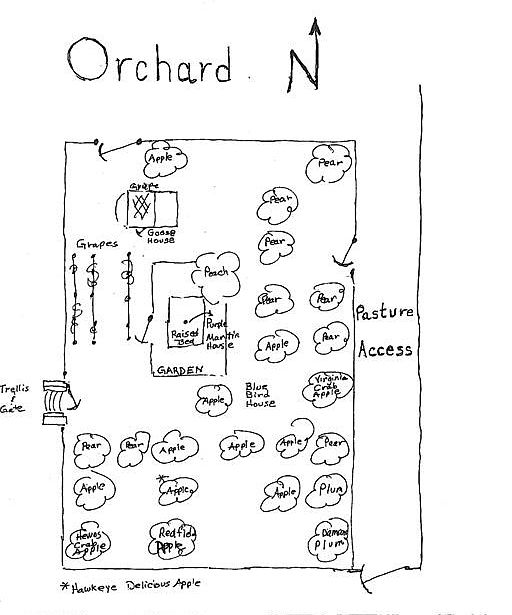 Orchard
N
Apple
Pear
Grape
Pear
Goose
House
Pear
Grapes
Peach
Pear
Pear
Pasture
Raised
Bed
Purple
Martin
House
Apple
Pear
Access
GARDEN
Trellis
&
Gate
Apple
Blue
Bird
House
Virginia
Crab
Apple
Pear
Pear
Apple
Apple
Apple
Peer
Apple
*
Apple
Apple
Plum
Hewes
Crab
Apple
Redfield
Apple
Damson
Plum
*Hawkeye Delicious Apple